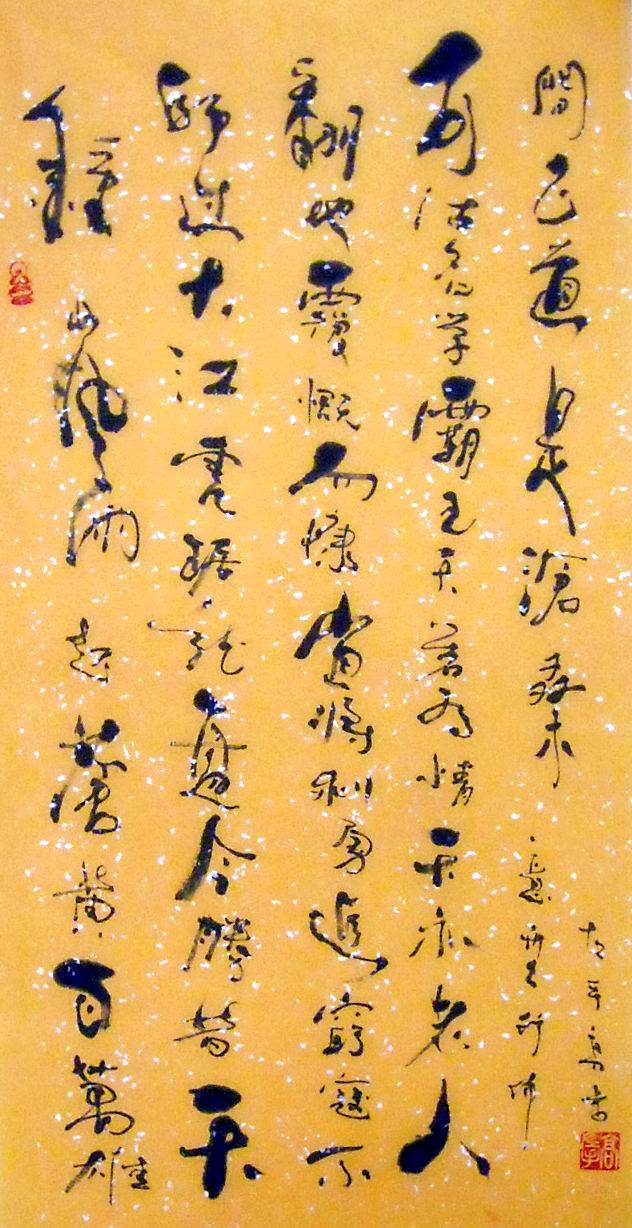 鐘山風雨起蒼黃百萬雄
師過大江虎踞龍盤今勝昔天
翻地覆慨而慷宜將剩勇追窮寇不
可沽名学霸王天若有情天亦老人
間正道是滄桑